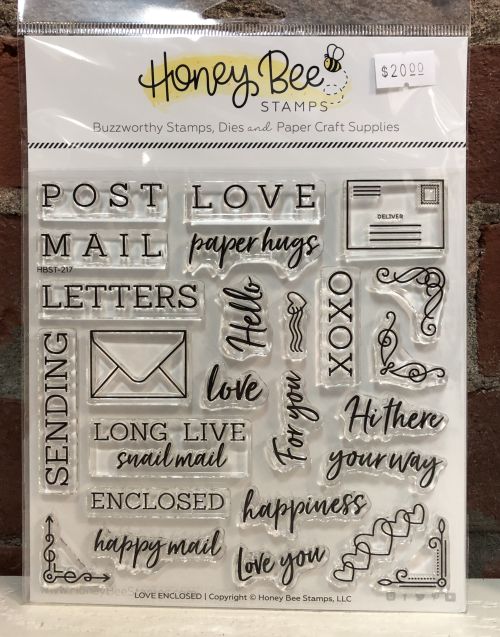 Honey Bee
STAMPS
$20.00
Buzzworthy Stamps, Dies and Paper Craft Supplies
POST
LOVE
DELIVER
MAIL
paper hugs
HBST-217
LETTERS
Hello
XOXO
SENDING
love
For you
Hi there
LONG LIVE
snail mail
your way
ENCLOSED
happiness
happy mail
Love you
LOVE ENCLOSED | Copyright © Honey Bee Stamps, LLC